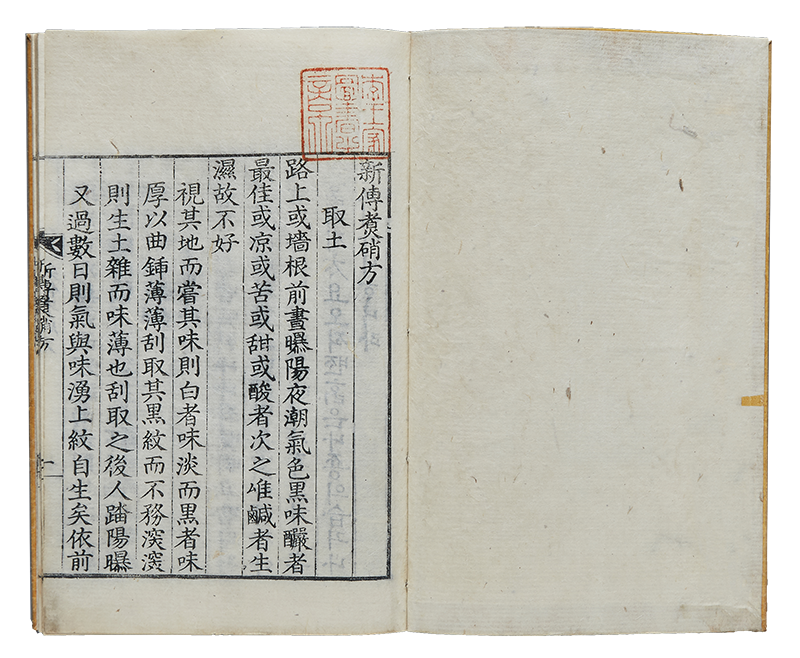 李王家圖書之章
新傳煮硝方
取土
路上或墻根前晝曝陽夜潮氣色黑味釅者
最佳或凉或苦或甜或酸者次之唯鹹者生
濕故不好
視其地而嘗其味則白者味淡而黑者味
厚以曲鍤薄薄刮取其黑紋而不務深深
則生土雜而味薄也刮取之後人踏陽曝
又過數日則氣與味湧上紋自生矣依前
新傳煮硝方
一